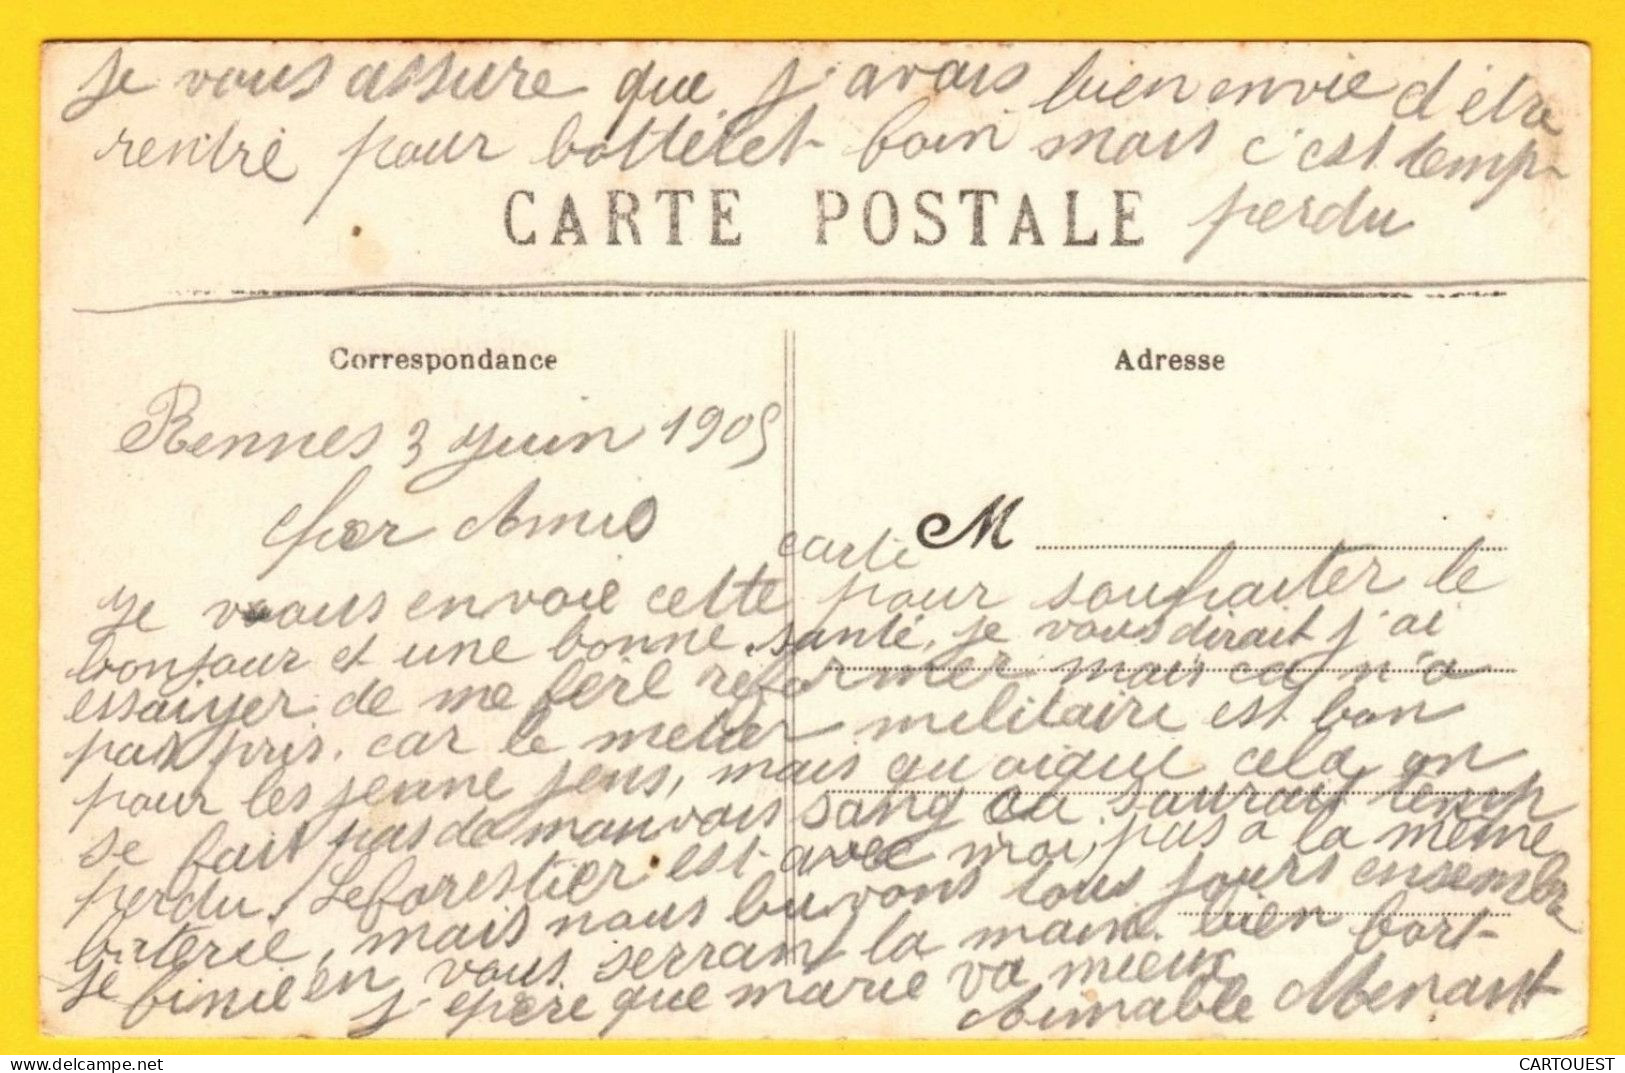 je vous assure que j'avais bien envie d'être
rentré pour bottélet foin mais c'est temp
perdu
CARTE POSTALE
Correspondance
Adresse
Rennes 3 juin 1905
cher Amis
M
Je vous envoie cette carte pour souhaiter le
bonjour et une bonne santé, je vous dirait j'ai
essaiyer de me fère réformer mais ca n'a
pas pris. car le metier militaire est bon
pour les jeune jens, mais quoique cela on
se fait pas de mauvais sang ca saurait temp
perdu. Leforestier est avec moi, pas a la même
baterie, mais nous buvons tous jours ensemble
je finie en vous serrant la main bien fort
j'epère que marie va mieux
Aimable Menant
CARTOUEST